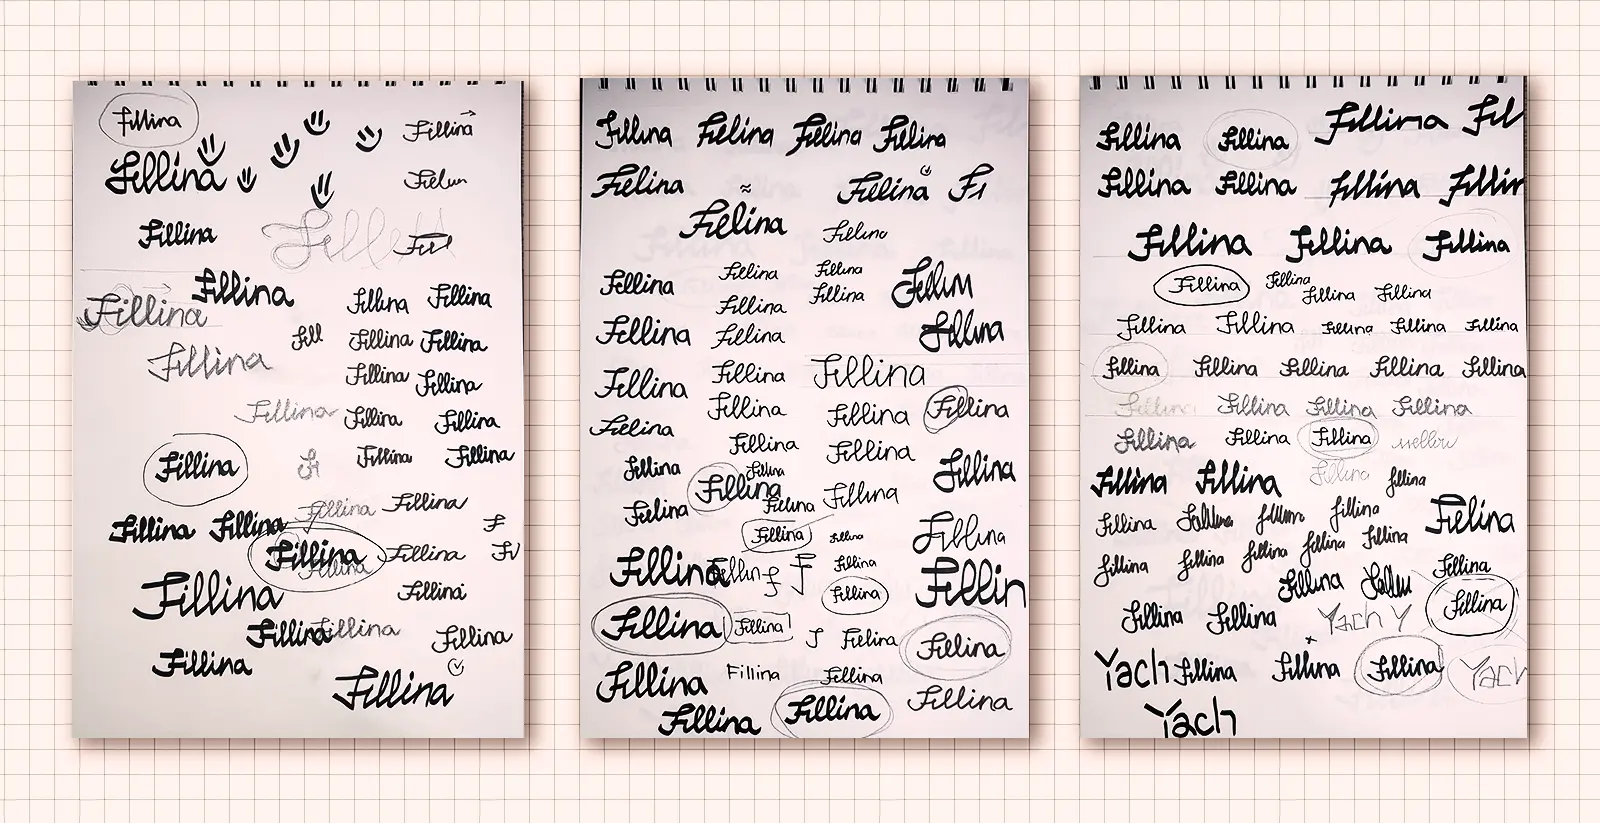 Fillina
Fillina
Fillina
Fillina
Fillina
Fillina
Fillina
Fillina Fillina
Fill Fillina Fillina
Fillina
Fillina Fillina
Fillina Fillina Fillina
Fillina Fillina Fillina
Fi
Fillina Fillina
Fillina Fillina F
Fillina Fillina Fi
Fillina
Fillina Fillina
Fillina Fillina Fillina
Fillina
Fillina
Fillina Felina Fillina Fillina
Felina Felina Fi
Felina Fillina
Fillina Fillina Fillina
Fillina Fillina
Fillina Fillina Fillina
Fillina Fillina
Fillina Fillina Fillina Fillina
Felina Fillina Fillina
Fillina Fillina Fillina
Fillina Fillina
Felina Felina
Fillina Fillina Fillina
Fillina Fillina Fillin
Fillina
Fillina Fillina Felina Felina
Fillina Fillina Fillina
Fillina Fillina Fillina
Fillina Fillina Fillina Fil
Fillina Fillina Fillina Fillin
Fillina Fillina Fillina
Fillina Fillina
Fillina Fillina
Fillina Fillina Fillina Fillina Fillina
Fillina Fillina Fillina Fillina Fillina
Fillina Fillina Fillina Fillina
Fillina Fillina Fillina
Fillina Fillina Fillina Fillina
Fillina Fillina Felina
Fillina Fillina Fillina Fillina Fillina
Fillina Fillina
Fillina Fillina Yach Y Fillina
Yach Fillina Fillina Fillina Yach
Yach